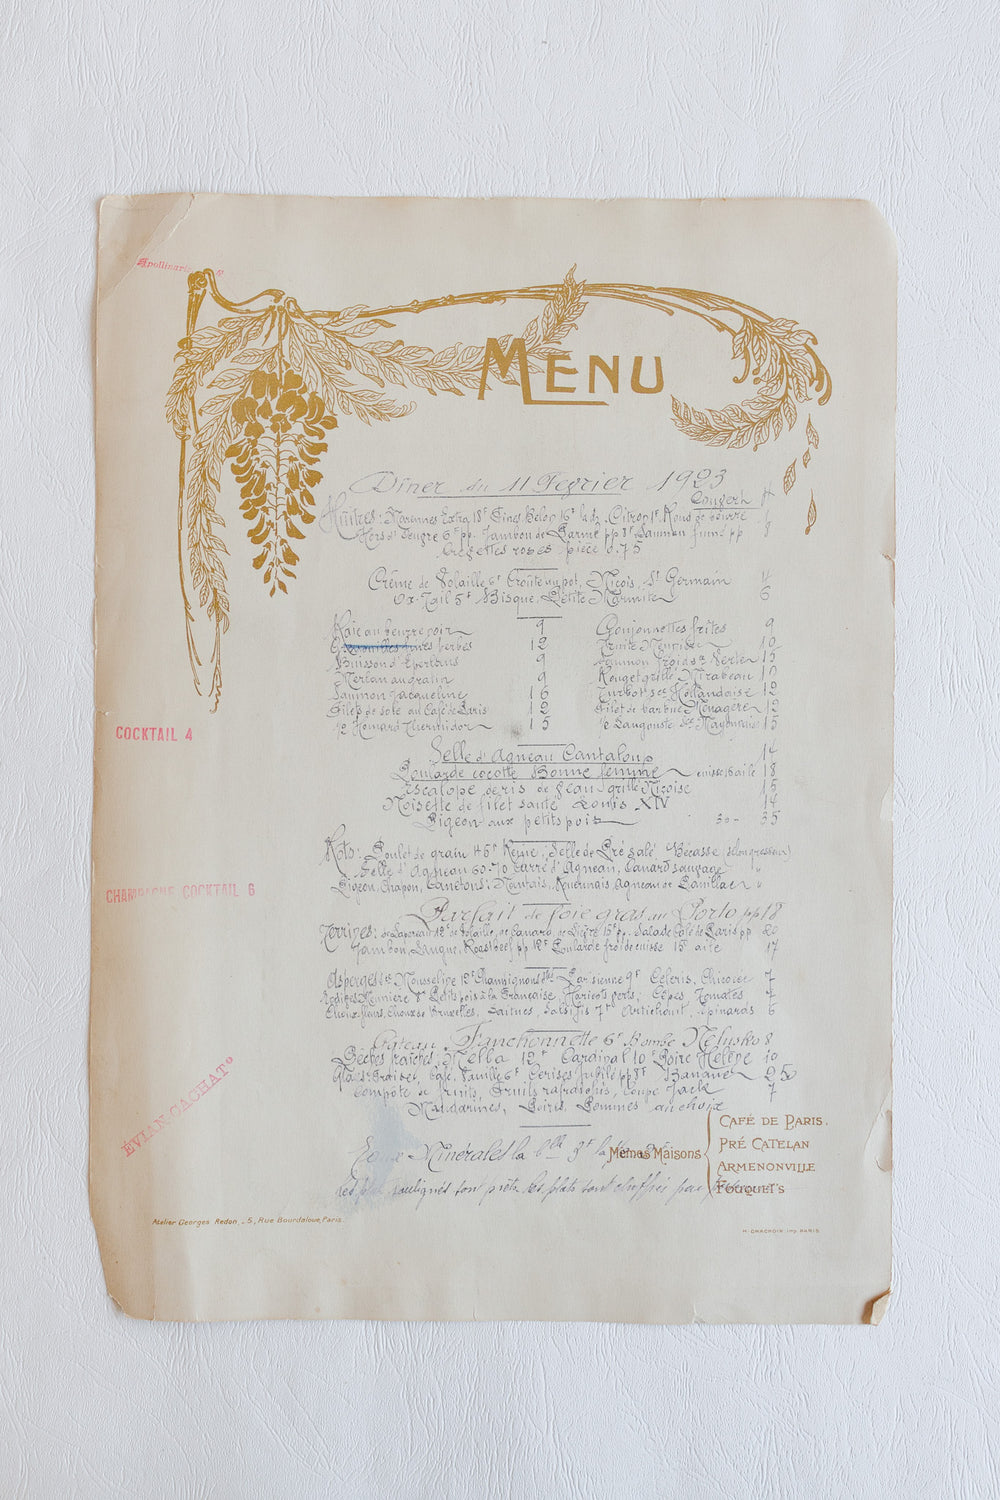 Apollinaris
MENU
Dîner du 11 Février 1923
Couvert
Huîtres: Marennes Extra 18f Fines, Belon 16f la dz. Citron 1f. beurre
Hors d'œuvre 6f pp. Jambon de Parme pp 8f Saumon fumé pp 8
Crevettes roses pièce 0.75
Crème de Volaille 6f Croûte au pot, Niçois, St Germain 4
Ox-Tail 5f Bisque, Petite Marmite 6
Raie au beurre noir 9 Goujonnettes frites 9
fines herbes 12 Truite Meunière 10
Buisson d'Eperlans 9 Saumon froid sce Verte 15
Merlan au gratin 9 Rouget grillé Mirabeau 10
Saumon Jacqueline 16 Turbot sce Hollandaise 12
Filets de sole au Café de Paris 12 Filet de barbue Ménagère 12
½ Homard Thermidor 15 ½ Langouste sce Mayonnaise 15
COCKTAIL 4
Selle d'Agneau Cantaloup 14
Poularde cocotte Bonne femme cuisse 15 aile 18
Escalope de ris de veau grillé Niçoise 15
Noisette de filet sauté Louis XIV 14
Pigeon aux petits pois 30 - 35
Rots: Poulet de grain 45f Reine, Selle de Pré salé, Bécasse (selon grosseur)
Selle d'Agneau 60-70 Carré d'Agneau, Canard sauvage "
Pigeon, Chapon, Canetons: Nantais, Rouennais, Agneau de Pauillac "
CHAMPAGNE COCKTAIL 6
Parfait de foie gras au Porto pp 18
Terrines: de Lapereau 12f de Volaille, de Canard, de Lièvre 15f pp. Salade Café de Paris pp 20
Jambon, Langue, Roastbeef pp 12f Poularde froide cuisse 15f aile 17
Asperges sce Mousseline 12f Champignons Parisienne 9f Céleris, Chicorée 7
Meunière 8f Petits pois à la Française, Haricots verts, Cèpes, Tomates 7
Choux-fleurs, Choux de Bruxelles, Laitues, Salsifis 7f Artichaut, Epinards 6
Gâteau Fanchonnette 6f Bombe Nélusko 8
Pêches fraîches: Melba 12f Cardinal 10f Poire Hélène 10
Glaces: Fraises, Café, Vanille 6f Cerises Jubilé pp 8f Banane 2.50
Compote de fruits, Fruits rafraîchis, Coupe Jack 7
Mandarines, Poires, Pommes au choix
ÉVIAN-CACHAT
Eaux Minérales la blle 3f la
MÊMES MAISONS
CAFÉ DE PARIS.
PRÉ CATELAN
ARMENONVILLE
FOUQUET'S
Les plats soulignés sont prêts Les plats sont chiffrés par personne
Atelier Georges Redon, 5, Rue Bourdaloue, Paris.
H. CHACHOIN, IMP. PARIS